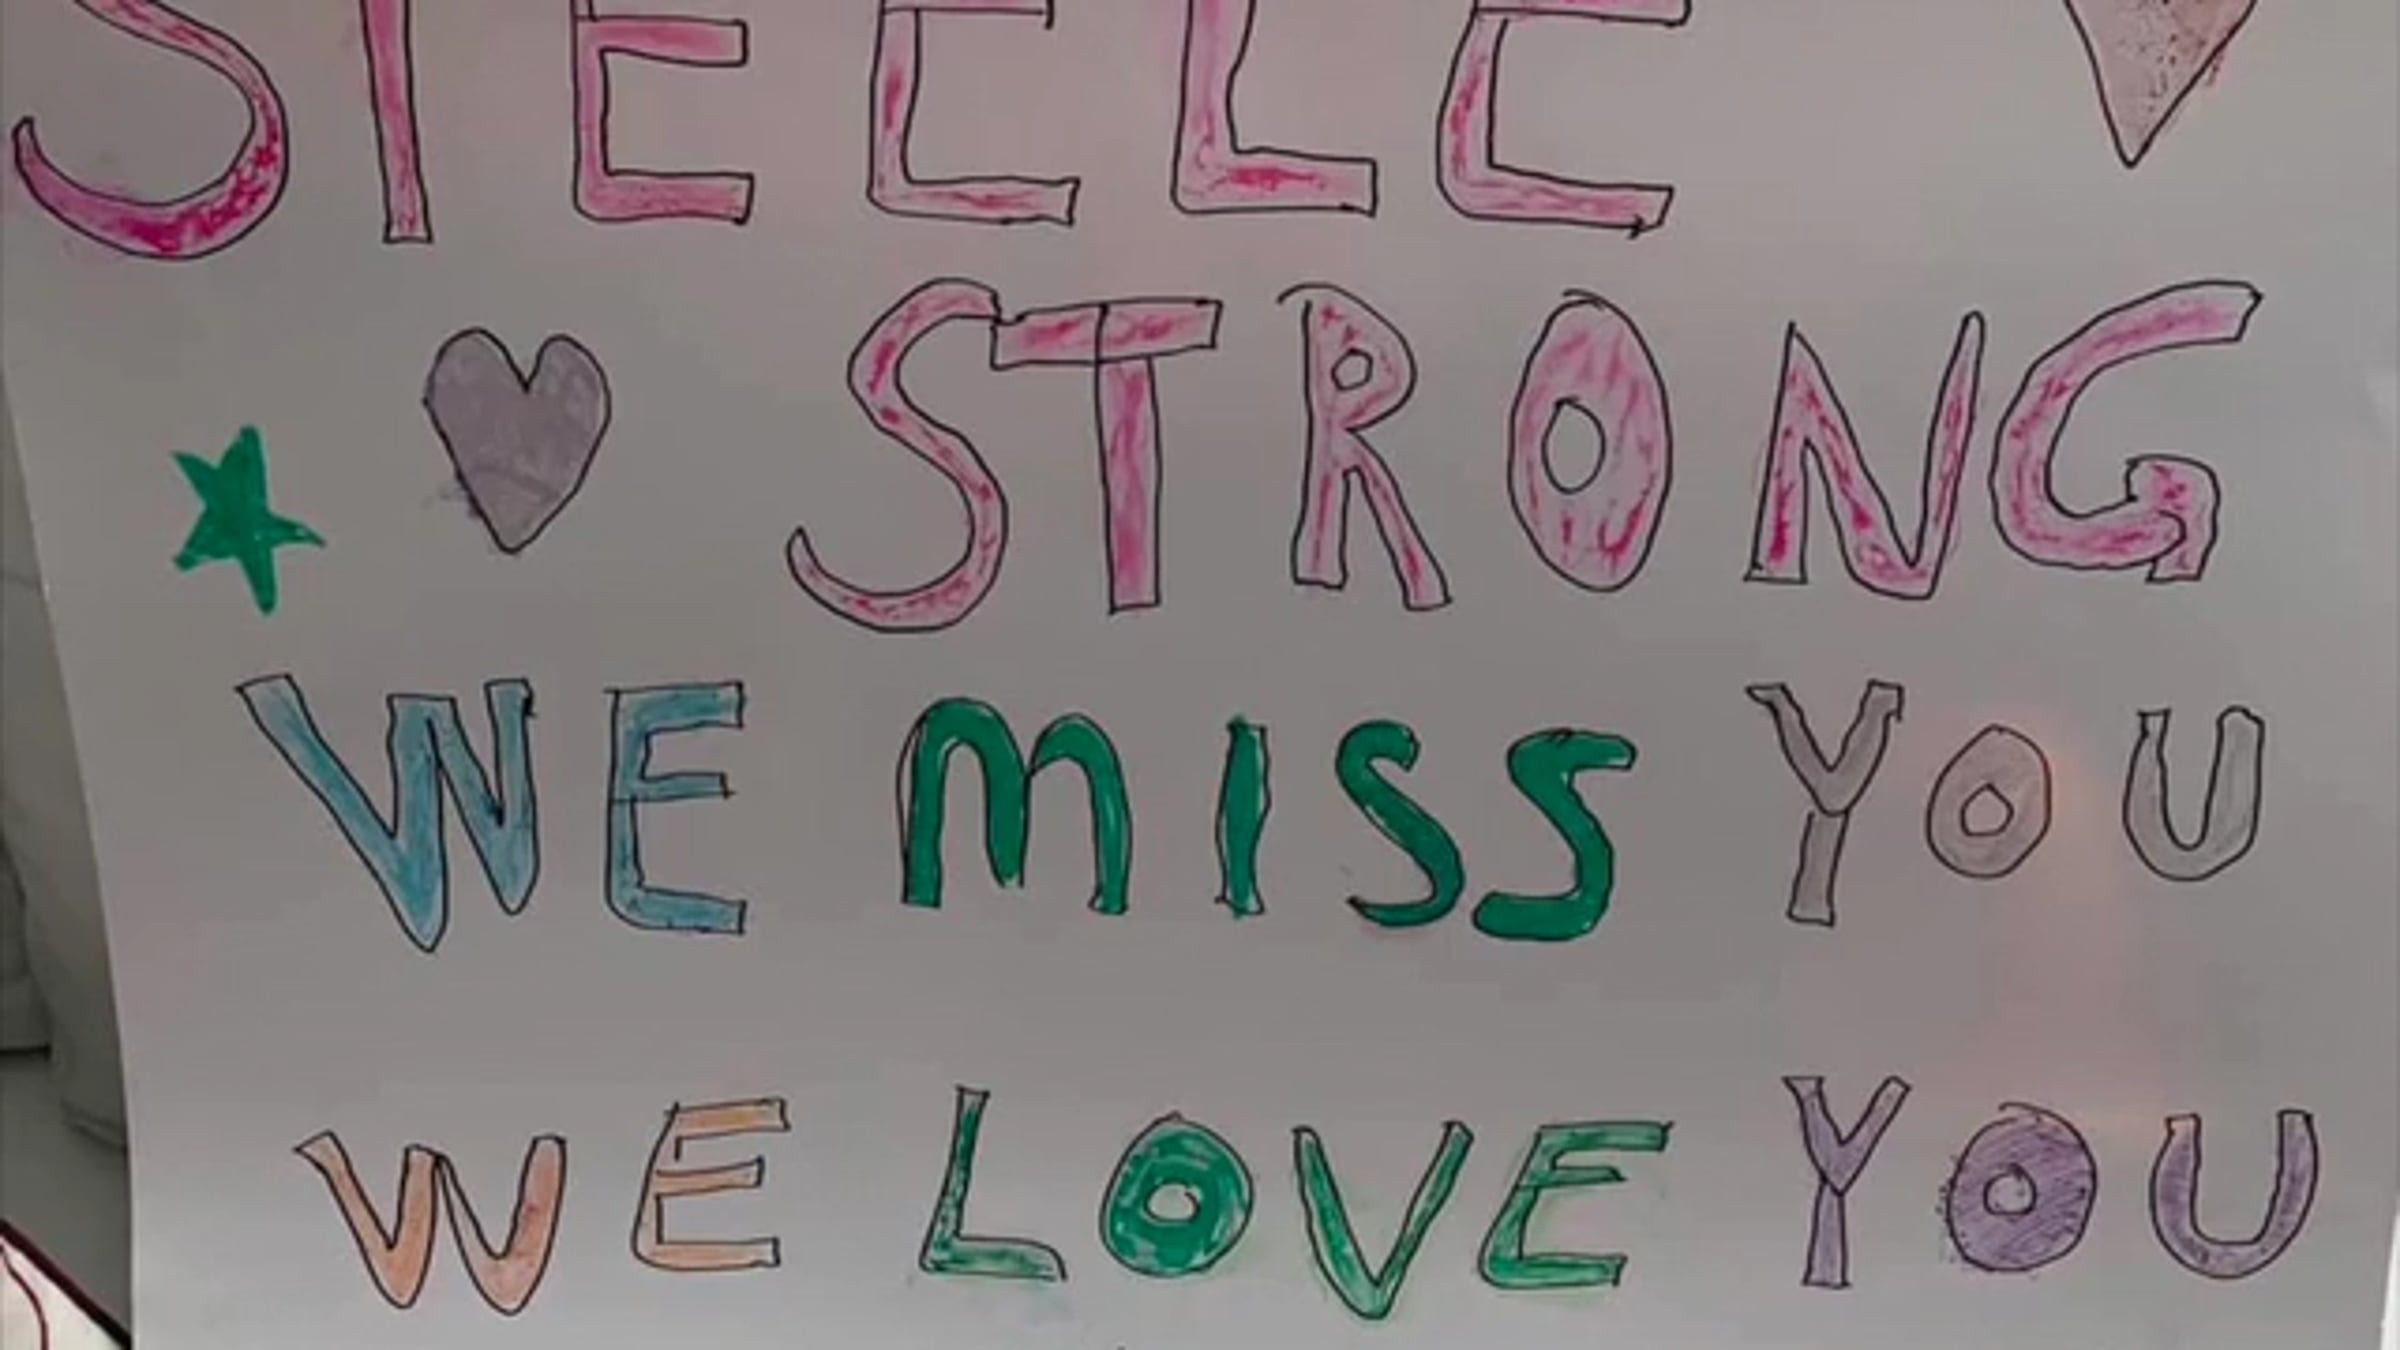 STEELE
STRONG
WE MISS YOU
WE LOVE YOU